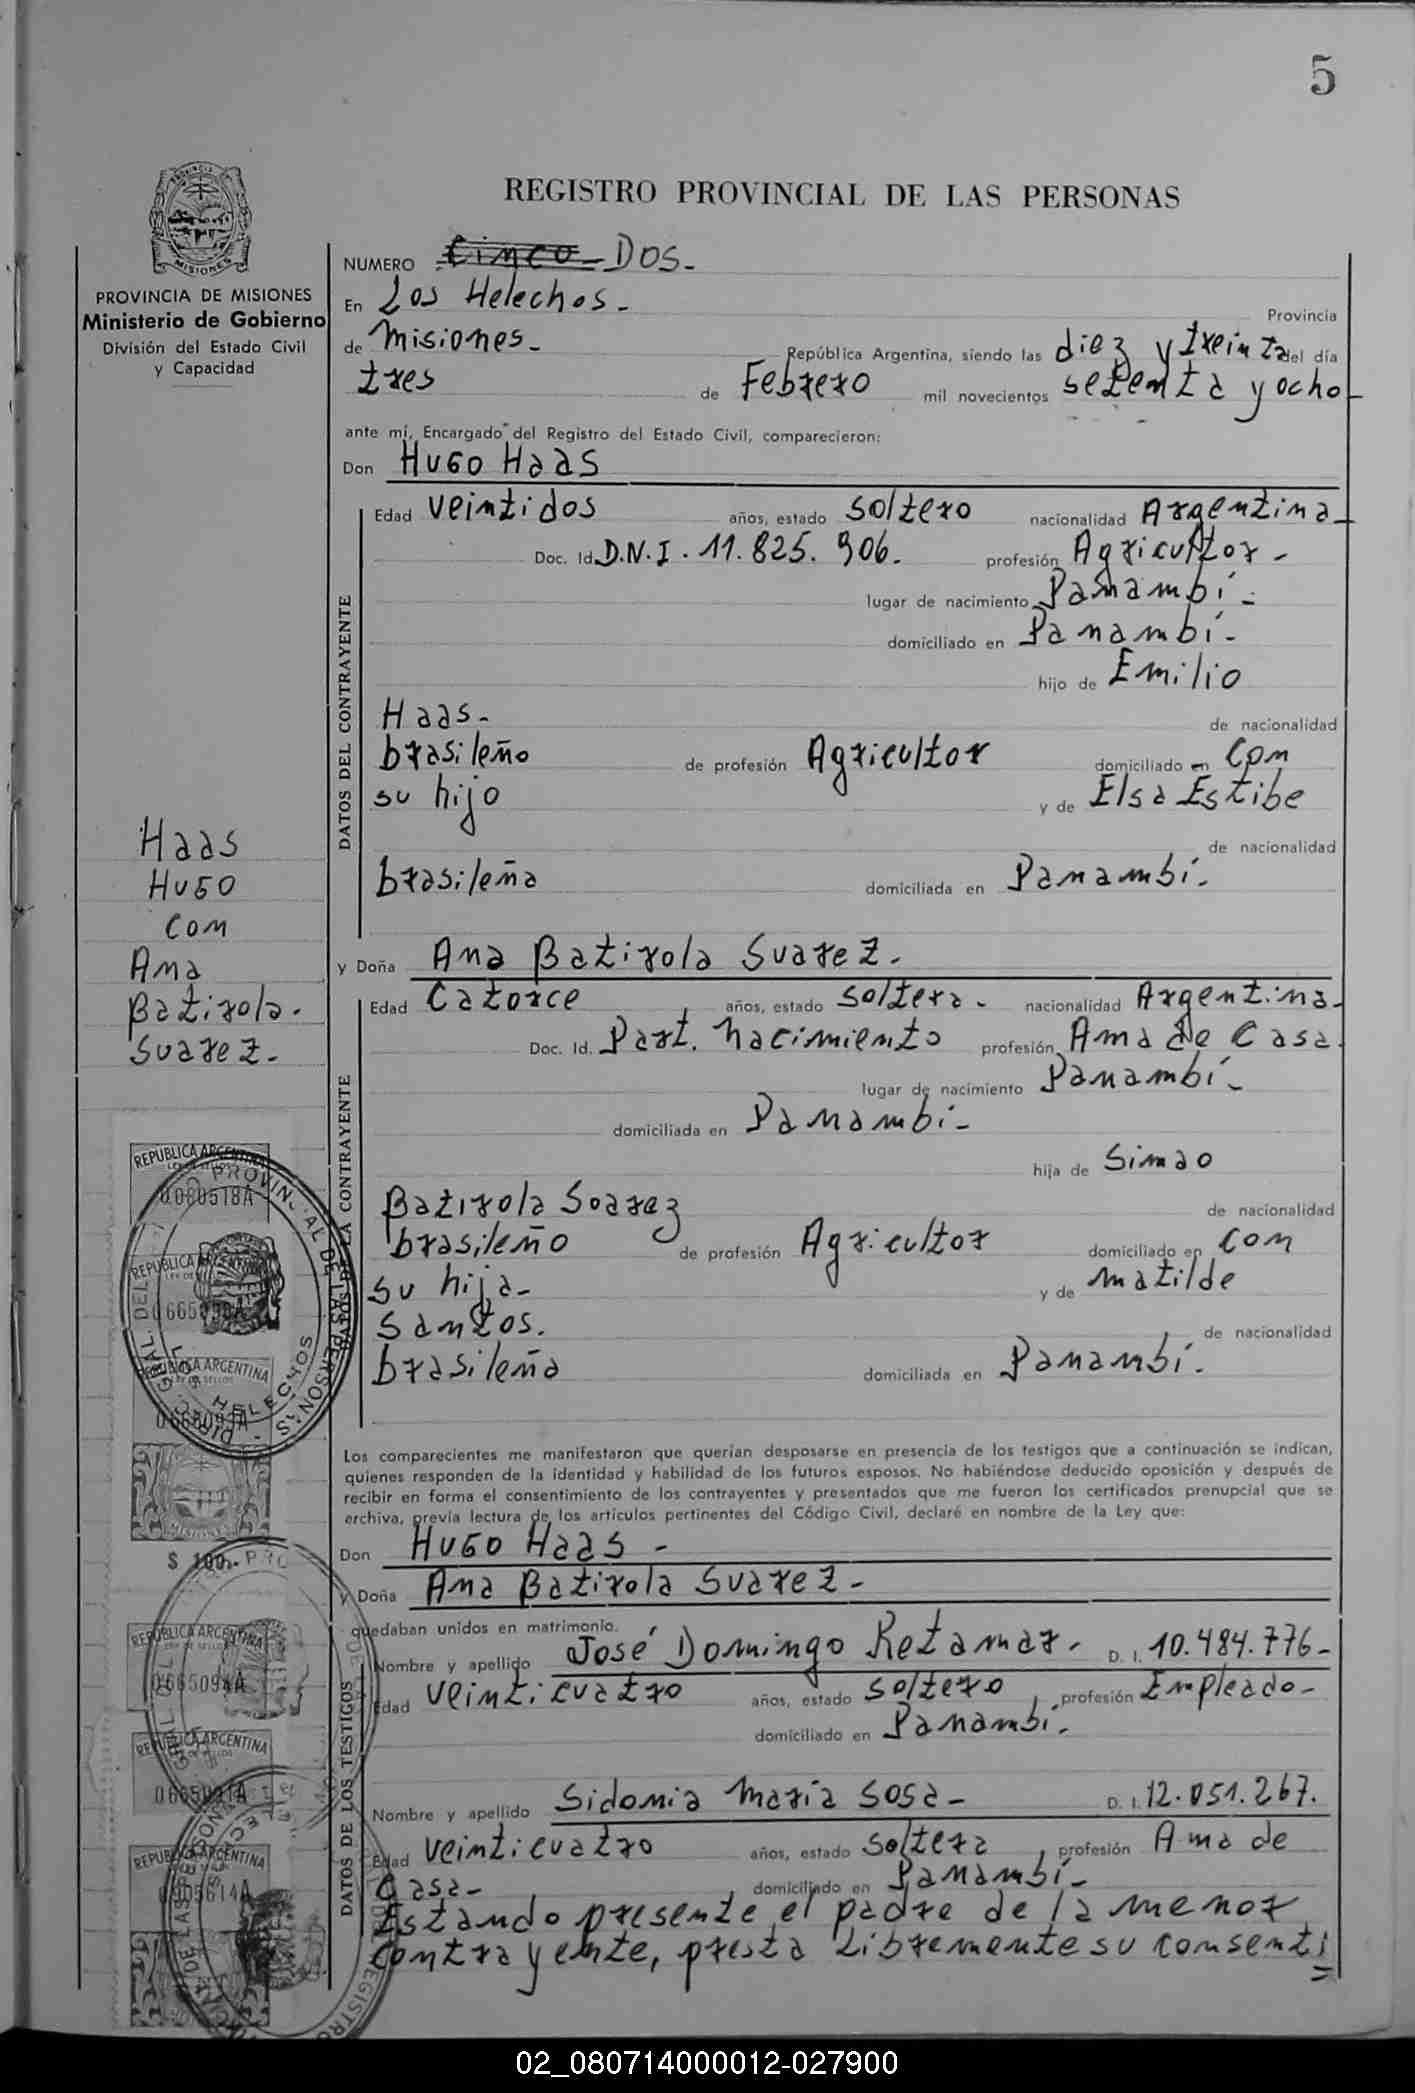 5
REGISTRO PROVINCIAL DE LAS PERSONAS
MISIONES
PROVINCIA DE MISIONES
Ministerio de Gobierno
División del Estado Civil
y Capacidad
NUMERO Cinco - DOS.-
En Los Helechos.- Provincia
de Misiones.- República Argentina, siendo las diez y treinta del día
tres de Febrero mil novecientos setenta y ocho
ante mí, Encargado del Registro del Estado Civil, comparecieron:
Don Hugo Haas
DATOS DEL CONTRAYENTE
Edad veintidos años, estado soltero nacionalidad Argentina
Doc. Id. D.N.I. 11.825.906. profesión Agricultor.-
lugar de nacimiento Panambí.-
domiciliado en Panambí.-
hijo de Emilio
Haas.- de nacionalidad
brasileño de profesión Agricultor domiciliado en con
su hijo y de Elsa Estibe
de nacionalidad
brasileña domiciliada en Panambí.-
Haas
Hugo
con
Ana
Batirola.
Suarez.-
y Doña Ana Batirola Suarez.
DATOS DE LA CONTRAYENTE
Edad Catorce años, estado soltera.- nacionalidad Argentina.
Doc. Id. Part. nacimiento profesión Ama de Casa.
lugar de nacimiento Panambí.-
domiciliada en Panambí.-
hija de Simao
Batirola Soarez de nacionalidad
brasileño de profesión Agricultor domiciliado en con
su hija.- y de Matilde
Santos. de nacionalidad
brasileña domiciliada en Panambí.
REPUBLICA ARGENTINA
LEY DE SELLOS
0080518A
REPUBLICA ARGENTINA
REPUBLICA ARGENTINA
MISIONES
$ 100.-
LOS HELECHOS
Los comparecientes me manifestaron que querían desposarse en presencia de los testigos que a continuación se indican,
quienes responden de la identidad y habilidad de los futuros esposos. No habiéndose deducido oposición y después de
recibir en forma el consentimiento de los contrayentes y presentados que me fueron los certificados prenupcial que se
archiva, previa lectura de los artículos pertinentes del Código Civil, declaré en nombre de la Ley que:
Don Hugo Haas -
y Doña Ana Batirola Suarez -
quedaban unidos en matrimonio.
DATOS DE LOS TESTIGOS
Nombre y apellido José Domingo Retamar. D. I. 10.484.776-
Edad veinticuatro años, estado soltero, profesión Empleado-
domiciliado en Panambí.
Nombre y apellido Sidonia María Sosa- D. I. 12.051.267.
Edad veinticuatro años, estado soltera, profesión Ama de
Casa- domiciliado en Panambí-
Estando presente el padre de la menor
contrayente, presta libremente su consenti
REPUBLICA ARGENTINA
0665094A
REPUBLICA ARGENTINA
REPUBLICA ARGENTINA
02_080714000012-027900